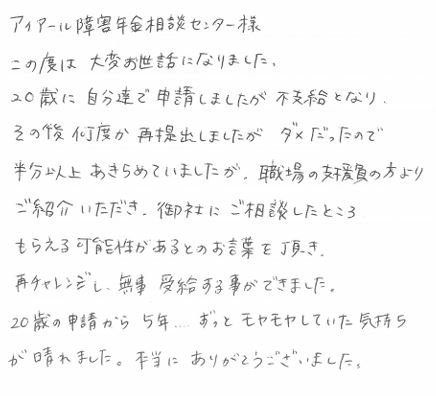 アイアール障害年金相談センター様
この度は 大変お世話になりました。
20歳に 自分達で申請しましたが 不支給となり、
その後 何度か 再提出しましたが ダメだったので
半分以上 あきらめていましたが、職場の支援員の方より
ご紹介 いただき、御社に ご相談したところ
もらえる可能性があるとのお言葉を頂き、
再チャレンジし、無事 受給する事ができました。
20歳の申請から 5年....ずっと モヤモヤしていた気持ち
が 晴れました。本当に ありがとうございました。